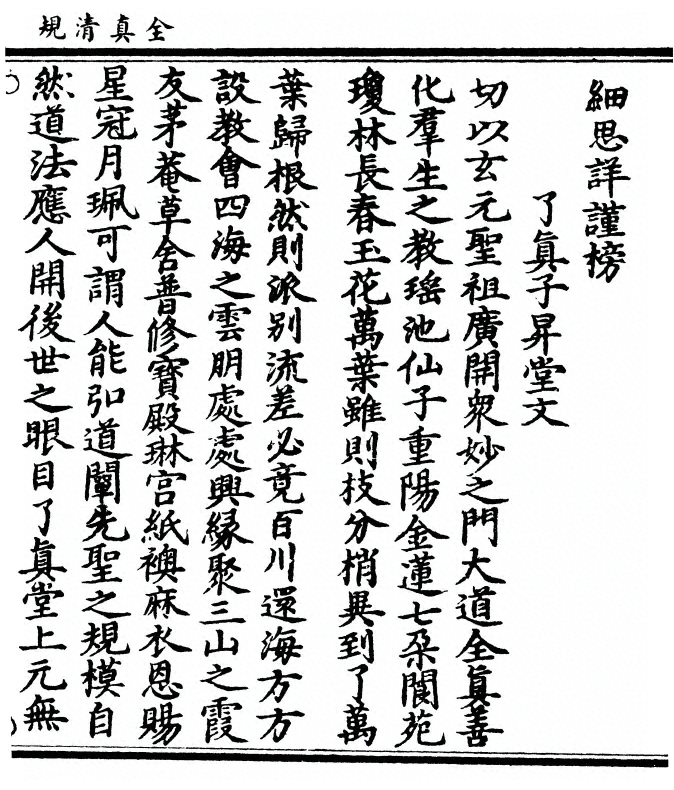 全真清規
細思詳謹榜
了眞子昇堂文
切以玄元聖祖廣開衆妙之門大道全眞善
化羣生之教瑤池仙子重陽金蓮七朶閬苑
瓊林長春玉花萬葉雖則枝分梢異到了萬
葉歸根然則派别流差必竟百川還海方方
設教會四海之雲朋處處興緣聚三山之霞
友茅菴草舍普修寶殿琳宫紙襖麻衣恩賜
星冠月珮可謂人能弘道闡先聖之規模自
然道法應人開後世之眼目了眞堂上元無